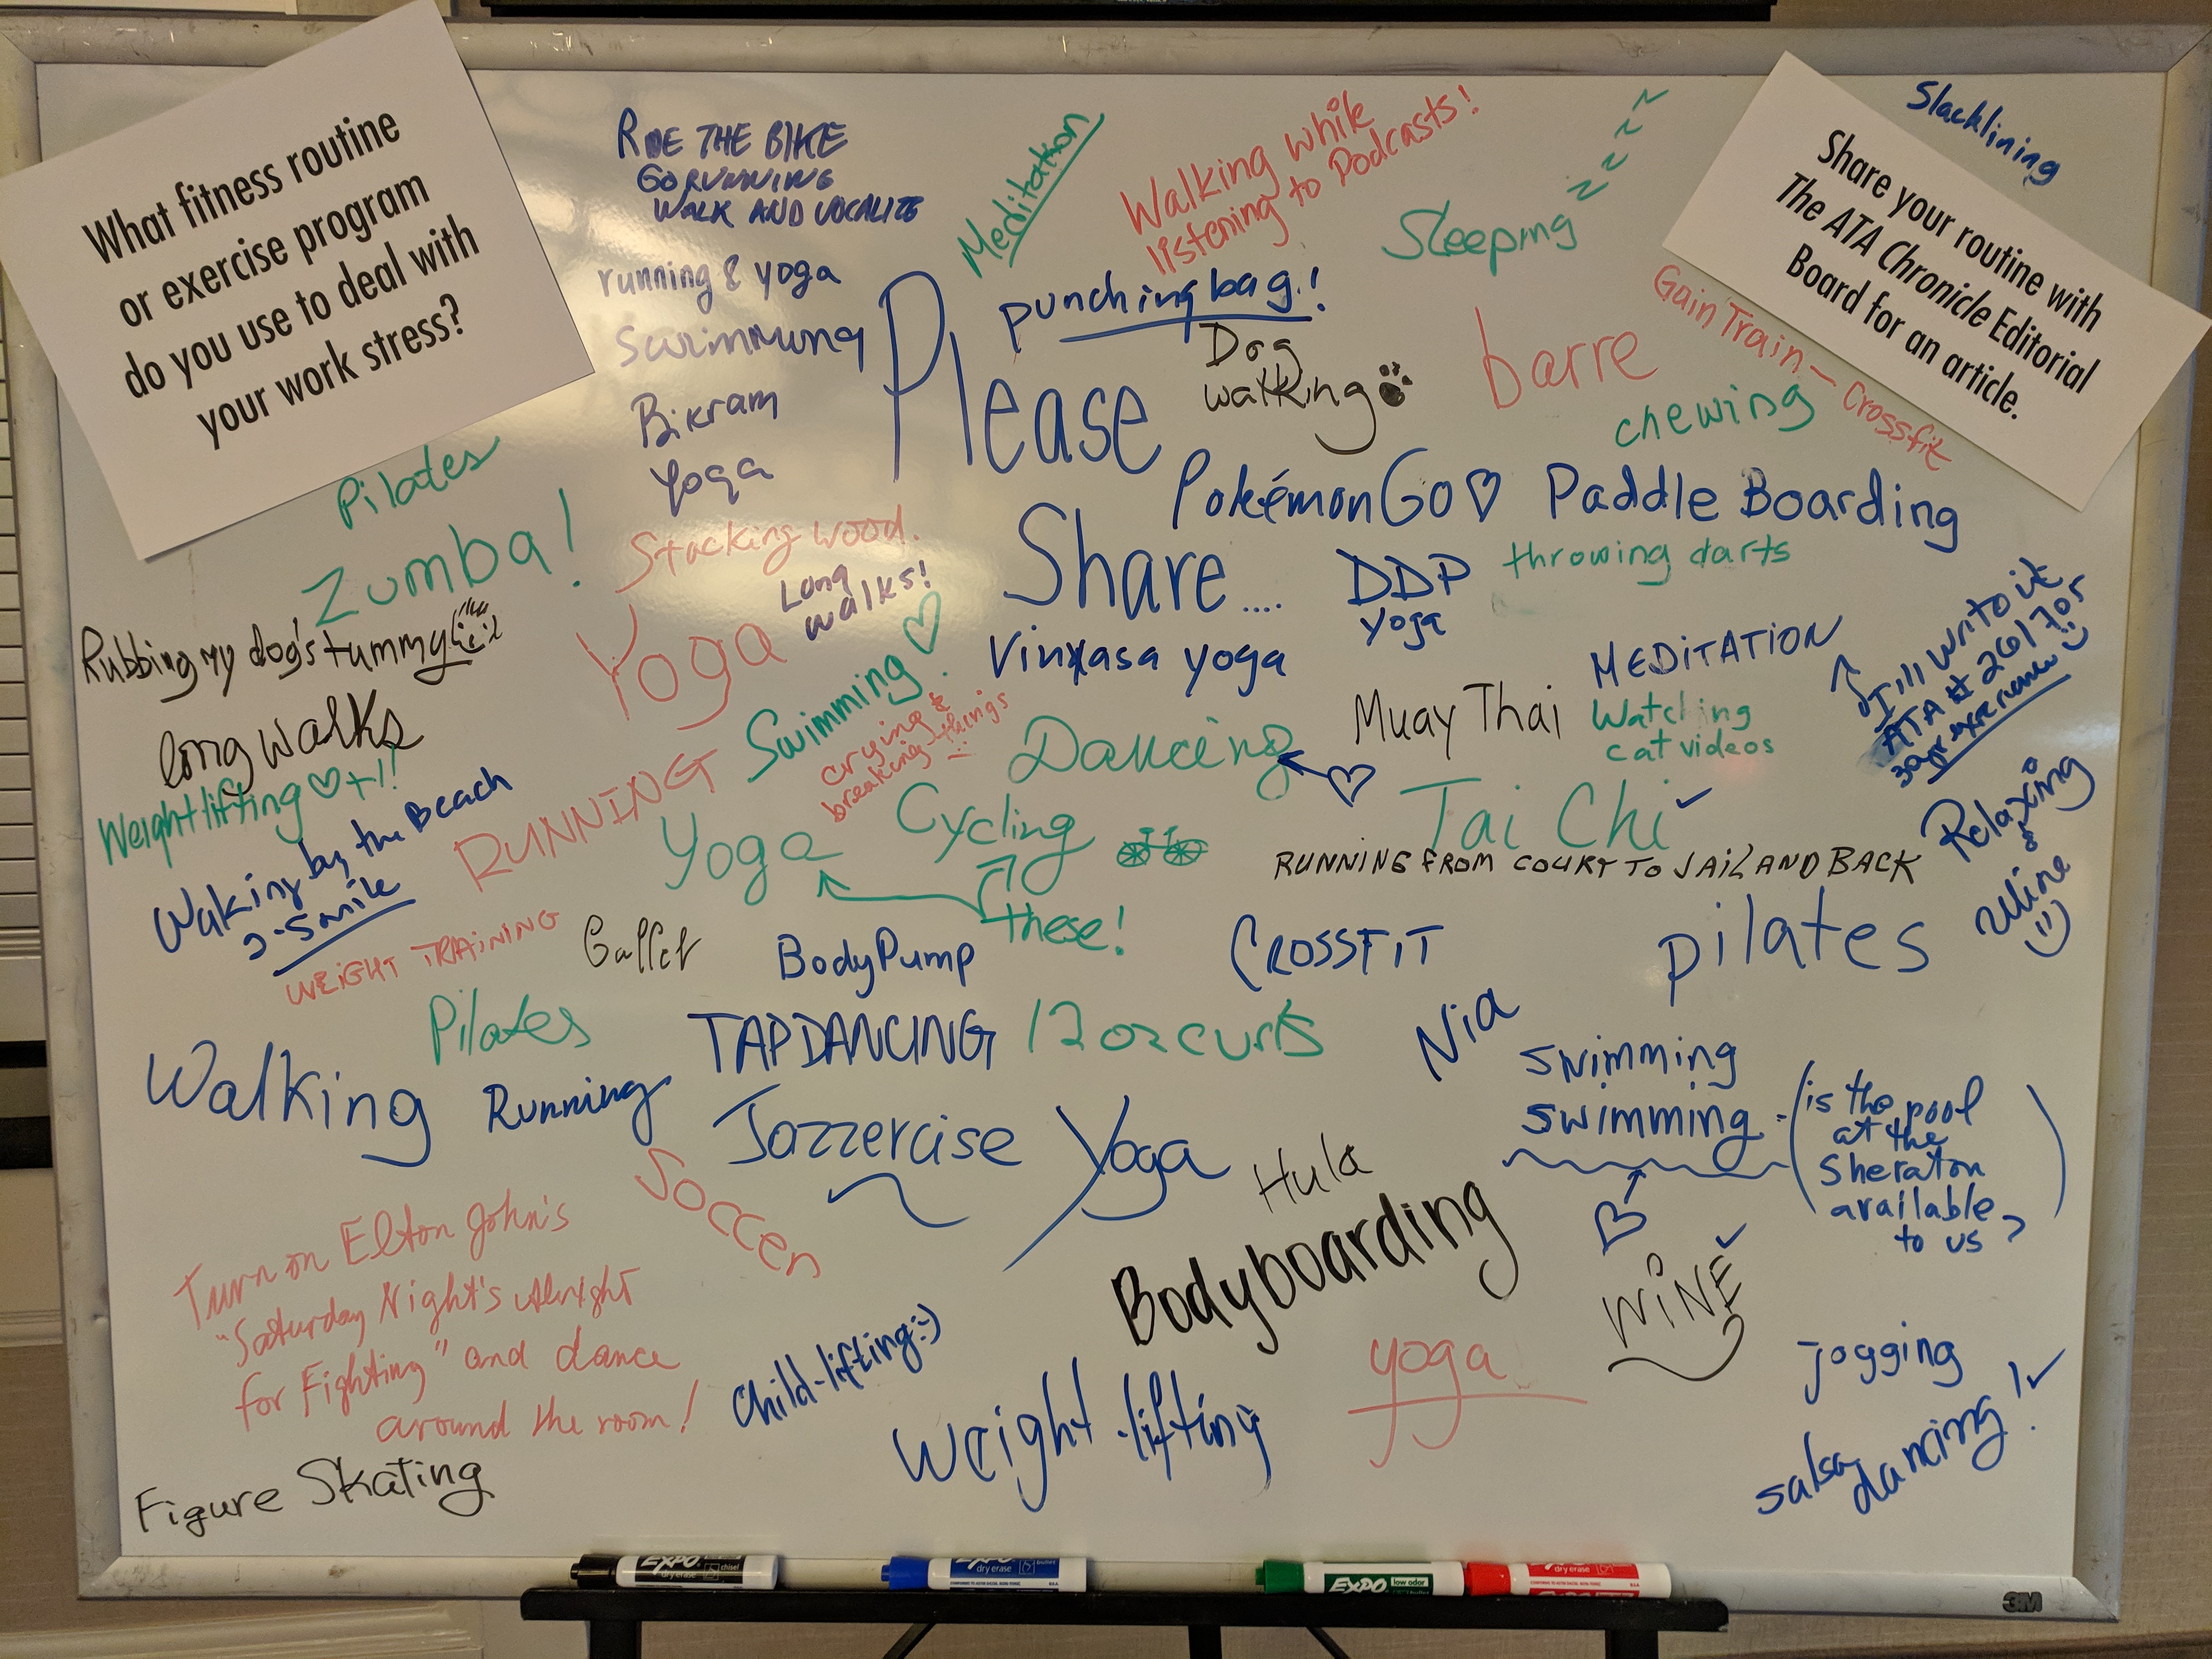 What fitness routine
or exercise program
do you use to deal with
your work stress?
Share your routine with
The ATA Chronicle Editorial
Board for an article.
Slacklining
RIDE THE BIKE
GO RUNNING
WALK AND VOCALIZE
Meditation
Walking while
listening to Podcasts!
Sleeping z z z z z
running & yoga
Swimming
Bikram
Yoga
Please
punching bag!
Dog
walking
barre
Gain Train - Crossfit
chewing
Pilates
Zumba!
Stacking wood.
Long
walks!
Share....
PokémonGo♡
Paddle Boarding
DDP
Yoga
throwing darts
Rubbing my dog's tummy
Yoga
Swimming ♡
Vinyasa yoga
MEDITATION
I'll write it
ATA # 261705
long walks
Weightlifting ♡ +1!
Walking by the Beach
Smile
RUNNING
crying &
breaking things
Dancing
♡
Muay Thai
Watching
cat videos
Yoga
Cycling
these!
Tai Chi ✓
RUNNING FROM COURT TO JAIL AND BACK
Relaxing
&
Wine :)
WEIGHT TRAINING
Ballet
BodyPump
CROSSFIT
pilates
Pilates
TAPDANCING
12 oz curls
Nia
Walking
Running
Jazzercise
Yoga
swimming
swimming
(is the pool
at the
Sheraton
available
to us?)
♡
Soccer
Hula
Bodyboarding
WiNE ✓
Turn on Elton John's
"Saturday Night's Alright
for Fighting" and dance
around the room!
Child-lifting :-)
Weight-lifting
yoga
jogging
salsa
dancing! ✓
Figure Skating
EXPO
dry erase
chisel
EXPO
dry erase
bullet
EXPO
low odor
dry erase
3M